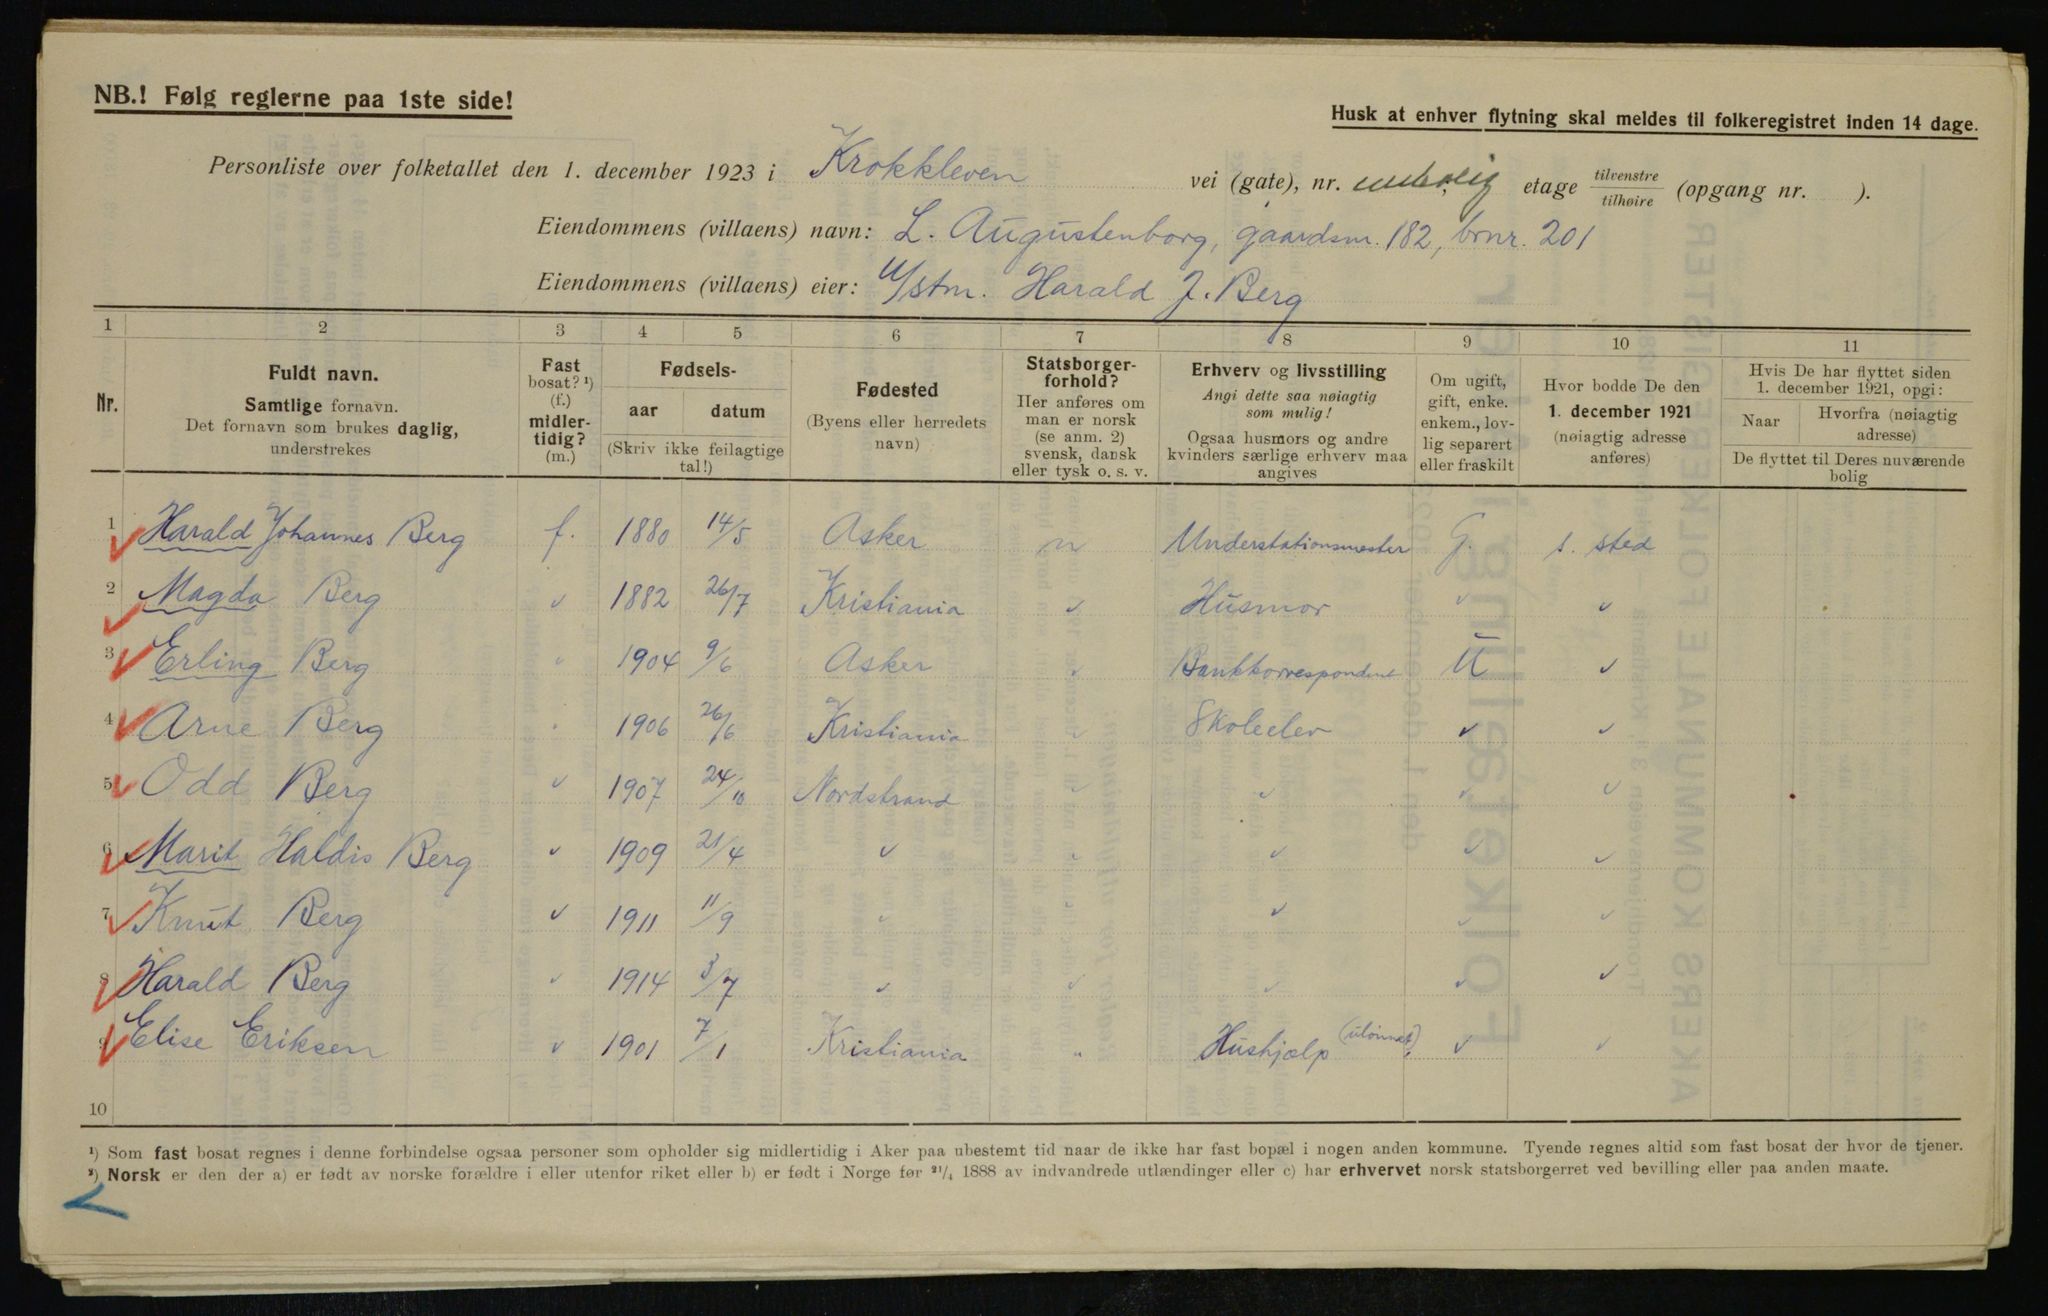 NB.! Følg reglerne paa 1ste side!
Husk at enhver flytning skal meldes til folkeregistret inden 14 dage.
Personliste over folketallet den 1. december 1923 i Krokkleven vei (gate), nr. etage tilvenstre/tilhøire (opgang nr. ).
Eiendommens (villaens) navn: L. Augustenborg, gaardsnr. 182, brnr. 201
Eiendommens (villaens) eier: U/stm. Harald J. Berg
1 2 3 4 5 6 7 8 9 10 11
Nr.
Fuldt navn.
Samtlige fornavn.
Det fornavn som brukes daglig,
understrekes
Fast
bosat? ¹)
(f.)
midler-
tidig?
(m.)
Fødsels-
aar datum
(Skriv ikke feilagtige
tal!)
Fødested
(Byens eller herredets
navn)
Statsborger-
forhold?
Her anføres om
man er norsk
(se anm. 2)
svensk, dansk
eller tysk o. s. v.
Erhverv og livsstilling
Angi dette saa nøiagtig
som mulig!
Ogsaa husmors og andre
kvinders særlige erhverv maa
angives
Om ugift,
gift, enke.
enkem., lov-
lig separert
eller fraskilt
Hvor bodde De den
1. december 1921
(nøiagtig adresse
anføres)
Hvis De har flyttet siden
1. december 1921, opgi:
Naar Hvorfra (nøiagtig
adresse)
De flyttet til Deres nuværende
bolig
1 Harald Johannes Berg f. 1880 14/5 Asker n Understationsmester G. s. sted
2 Magda Berg ✓ 1882 26/7 Kristiania ✓ Husmor ✓ ✓
3 Erling Berg ✓ 1904 9/6 Asker ✓ Bankkorrespondent U ✓
4 Arne Berg ✓ 1906 26/6 Kristiania ✓ Skoleelev ✓ ✓
5 Odd Berg ✓ 1907 24/10 Nordstrand ✓ ✓ ✓ ✓
6 Marit Haldis Berg ✓ 1909 21/4 ✓ ✓ ✓ ✓ ✓
7 Knut Berg ✓ 1911 11/9 ✓ ✓ ✓ ✓ ✓
8 Harald Berg ✓ 1914 3/7 ✓ ✓ ✓ ✓ ✓
9 Elise Eriksen ✓ 1901 7/1 Kristiania ✓ Hushjælp (ulønnet) ✓ ✓
10
¹) Som fast bosat regnes i denne forbindelse ogsaa personer som opholder sig midlertidig i Aker paa ubestemt tid naar de ikke har fast bopæl i nogen anden kommune. Tyende regnes altid som fast bosat der hvor de tjener.
²) Norsk er den der a) er født av norske forældre i eller utenfor riket eller b) er født i Norge før ²¹/₄ 1888 av indvandrede utlændinger eller c) har erhvervet norsk statsborgerret ved bevilling eller paa anden maate.